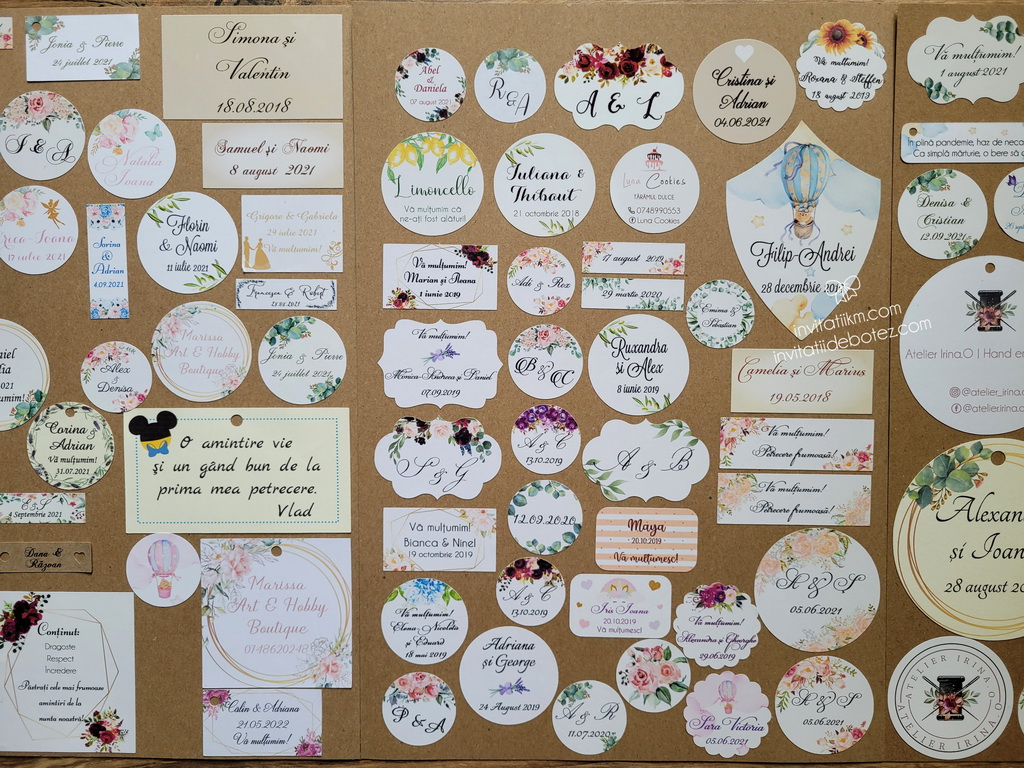 Jenia & Pierre
24 juillet 2021
Simona şi
Valentin
18.08.2018
I & A
Natalia
Ioana
Samuel şi Naomi
8 august 2021
17 iulie 2021
Sorina
&
Adrian
4.09.2021
Florin
& Naomi
11 iulie 2021
Grigore & Gabriela
29 iulie 2021
Vă mulţumim!
Francesca & Robert
Alex
&
Denisa
Marissa
Art & Hobby
Boutique
Jenia & Pierre
24 juillet 2021
Corina
&
Adrian
Vă mulţumim!
31.07.2021
O amintire vie
şi un gând bun de la
prima mea petrecere.
Vlad
E & I
4 Septembrie 2021
Dana &
Răzvan
Conţinut:
Dragoste
Respect
Încredere
Păstraţi cele mai frumoase
amintiri de la
nunta noastră!
Marissa
Art & Hobby
Boutique
0748620248
Călin & Adriana
21.05.2022
Vă mulţumim!
Abel
&
Daniela
07 august 2021
R & A
A & L
Cristina şi
Adrian
04.06.2021
Vă mulţumim!
Roxana & Steffen
18 august 2019
Limoncello
Vă mulţumim că
ne-aţi fost alături!
Iuliana &
Thibaut
21 octombrie 2018
Luna Cookies
TĂRÂMUL DULCE
0748990553
Luna Cookies
Filip-Andrei
28 decembrie 2019
Vă mulţumim!
Marian şi Ileana
1 iunie 2019
Adi & Rex
17 august 2019
29 martie 2020
Emima &
Sebastian
invitatiikm.com
invitatiidebotez.com
Vă mulţumim!
Monica-Andreea şi Daniel
07.09.2019
B & C
Ruxandra
şi Alex
8 iunie 2019
Camelia şi Marius
19.05.2018
S & G
A & C
13.10.2019
A & B
Vă mulţumim!
Petrecere frumoasă!
Vă mulţumim!
Petrecere frumoasă!
Vă mulţumim!
Bianca & Ninel
19 octombrie 2019
12.09.2020
Maya
20.10.2019
Vă mulţumesc!
Vă mulţumim!
Elena-Nicoleta
şi Eduard
18 mai 2019
A & C
13.10.2019
Ira Ioana
20.10.2019
Vă mulţumesc!
Vă mulţumim!
Alexandra şi Gheorghe
29.06.2019
05.06.2021
Adriana
şi George
24 August 2019
P & A
A & R
11.07.2020
Sara Victoria
05.06.2021
05.06.2021
Vă mulţumim!
1 august 2021
În plină pandemie, haz de neca
Ca simplă mărturie, o bere să
Denisa &
Cristian
12.09.2021
Atelier Irina.O | Hand
@atelier_irina.
@atelier.irina.
Alexan
şi Ioan
28 august 20
ATELIER IRINA O
ATELIER IRINA O